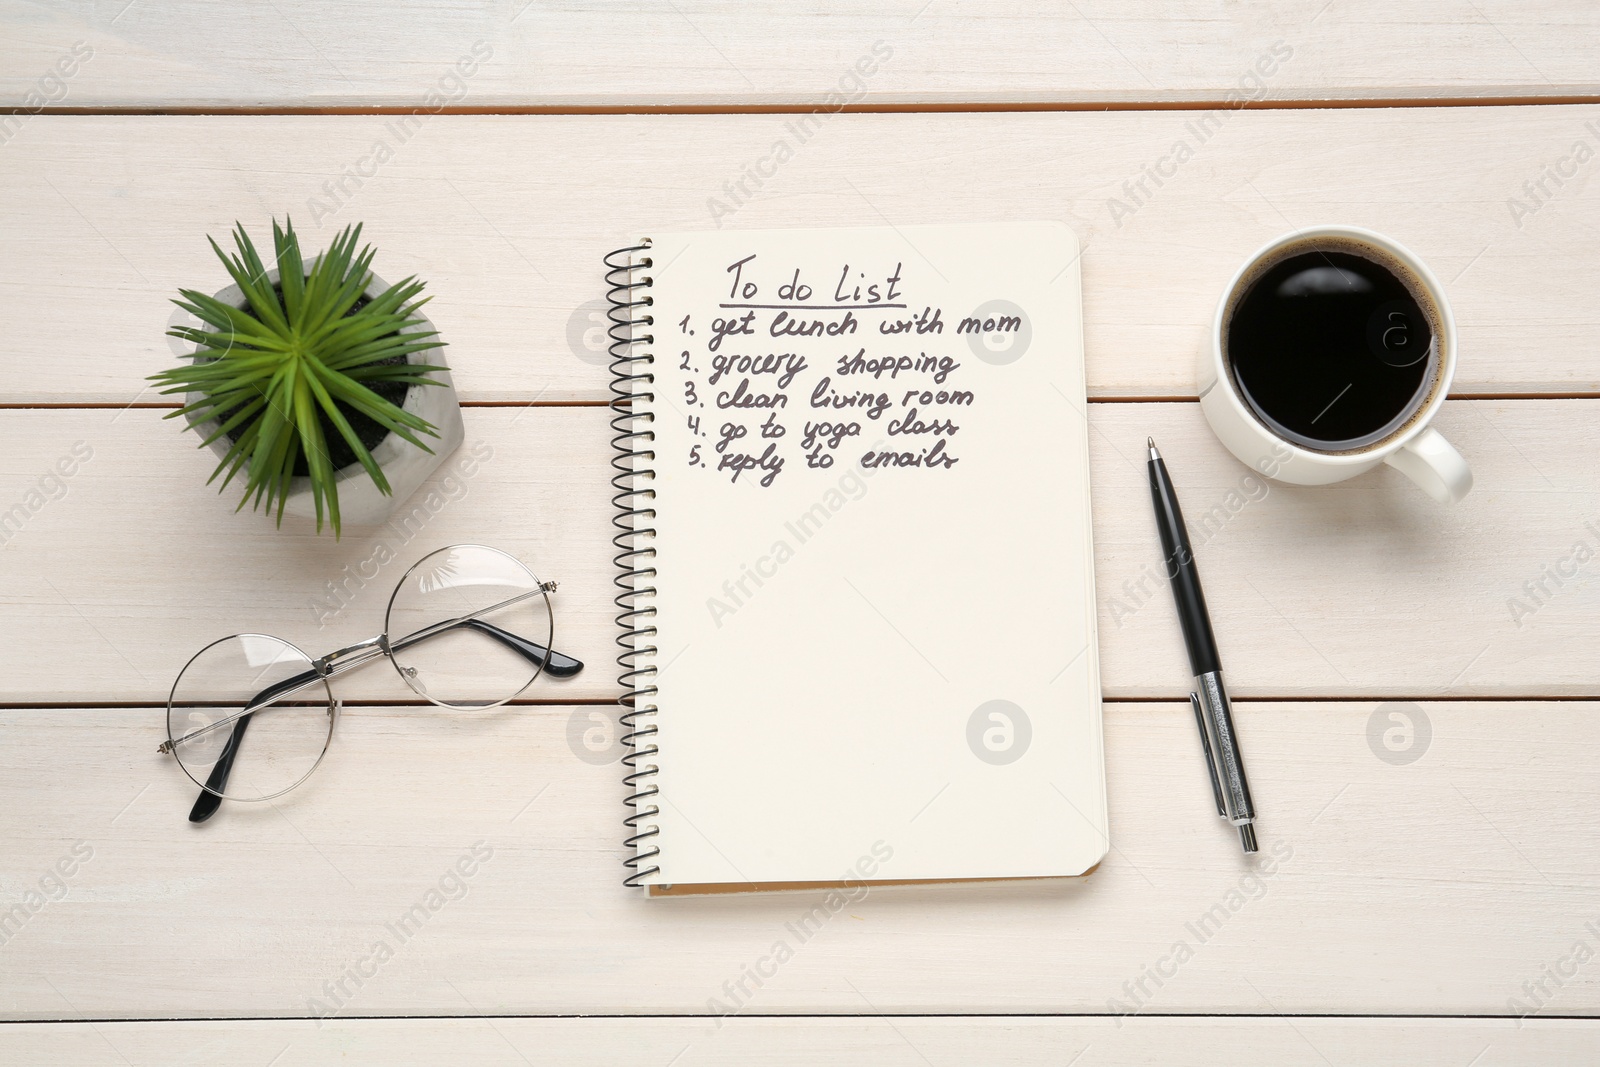 To do List
1. get lunch with mom
2. grocery shopping
3. clean living room
4. go to yoga class
5. reply to emails
Africa Images
a